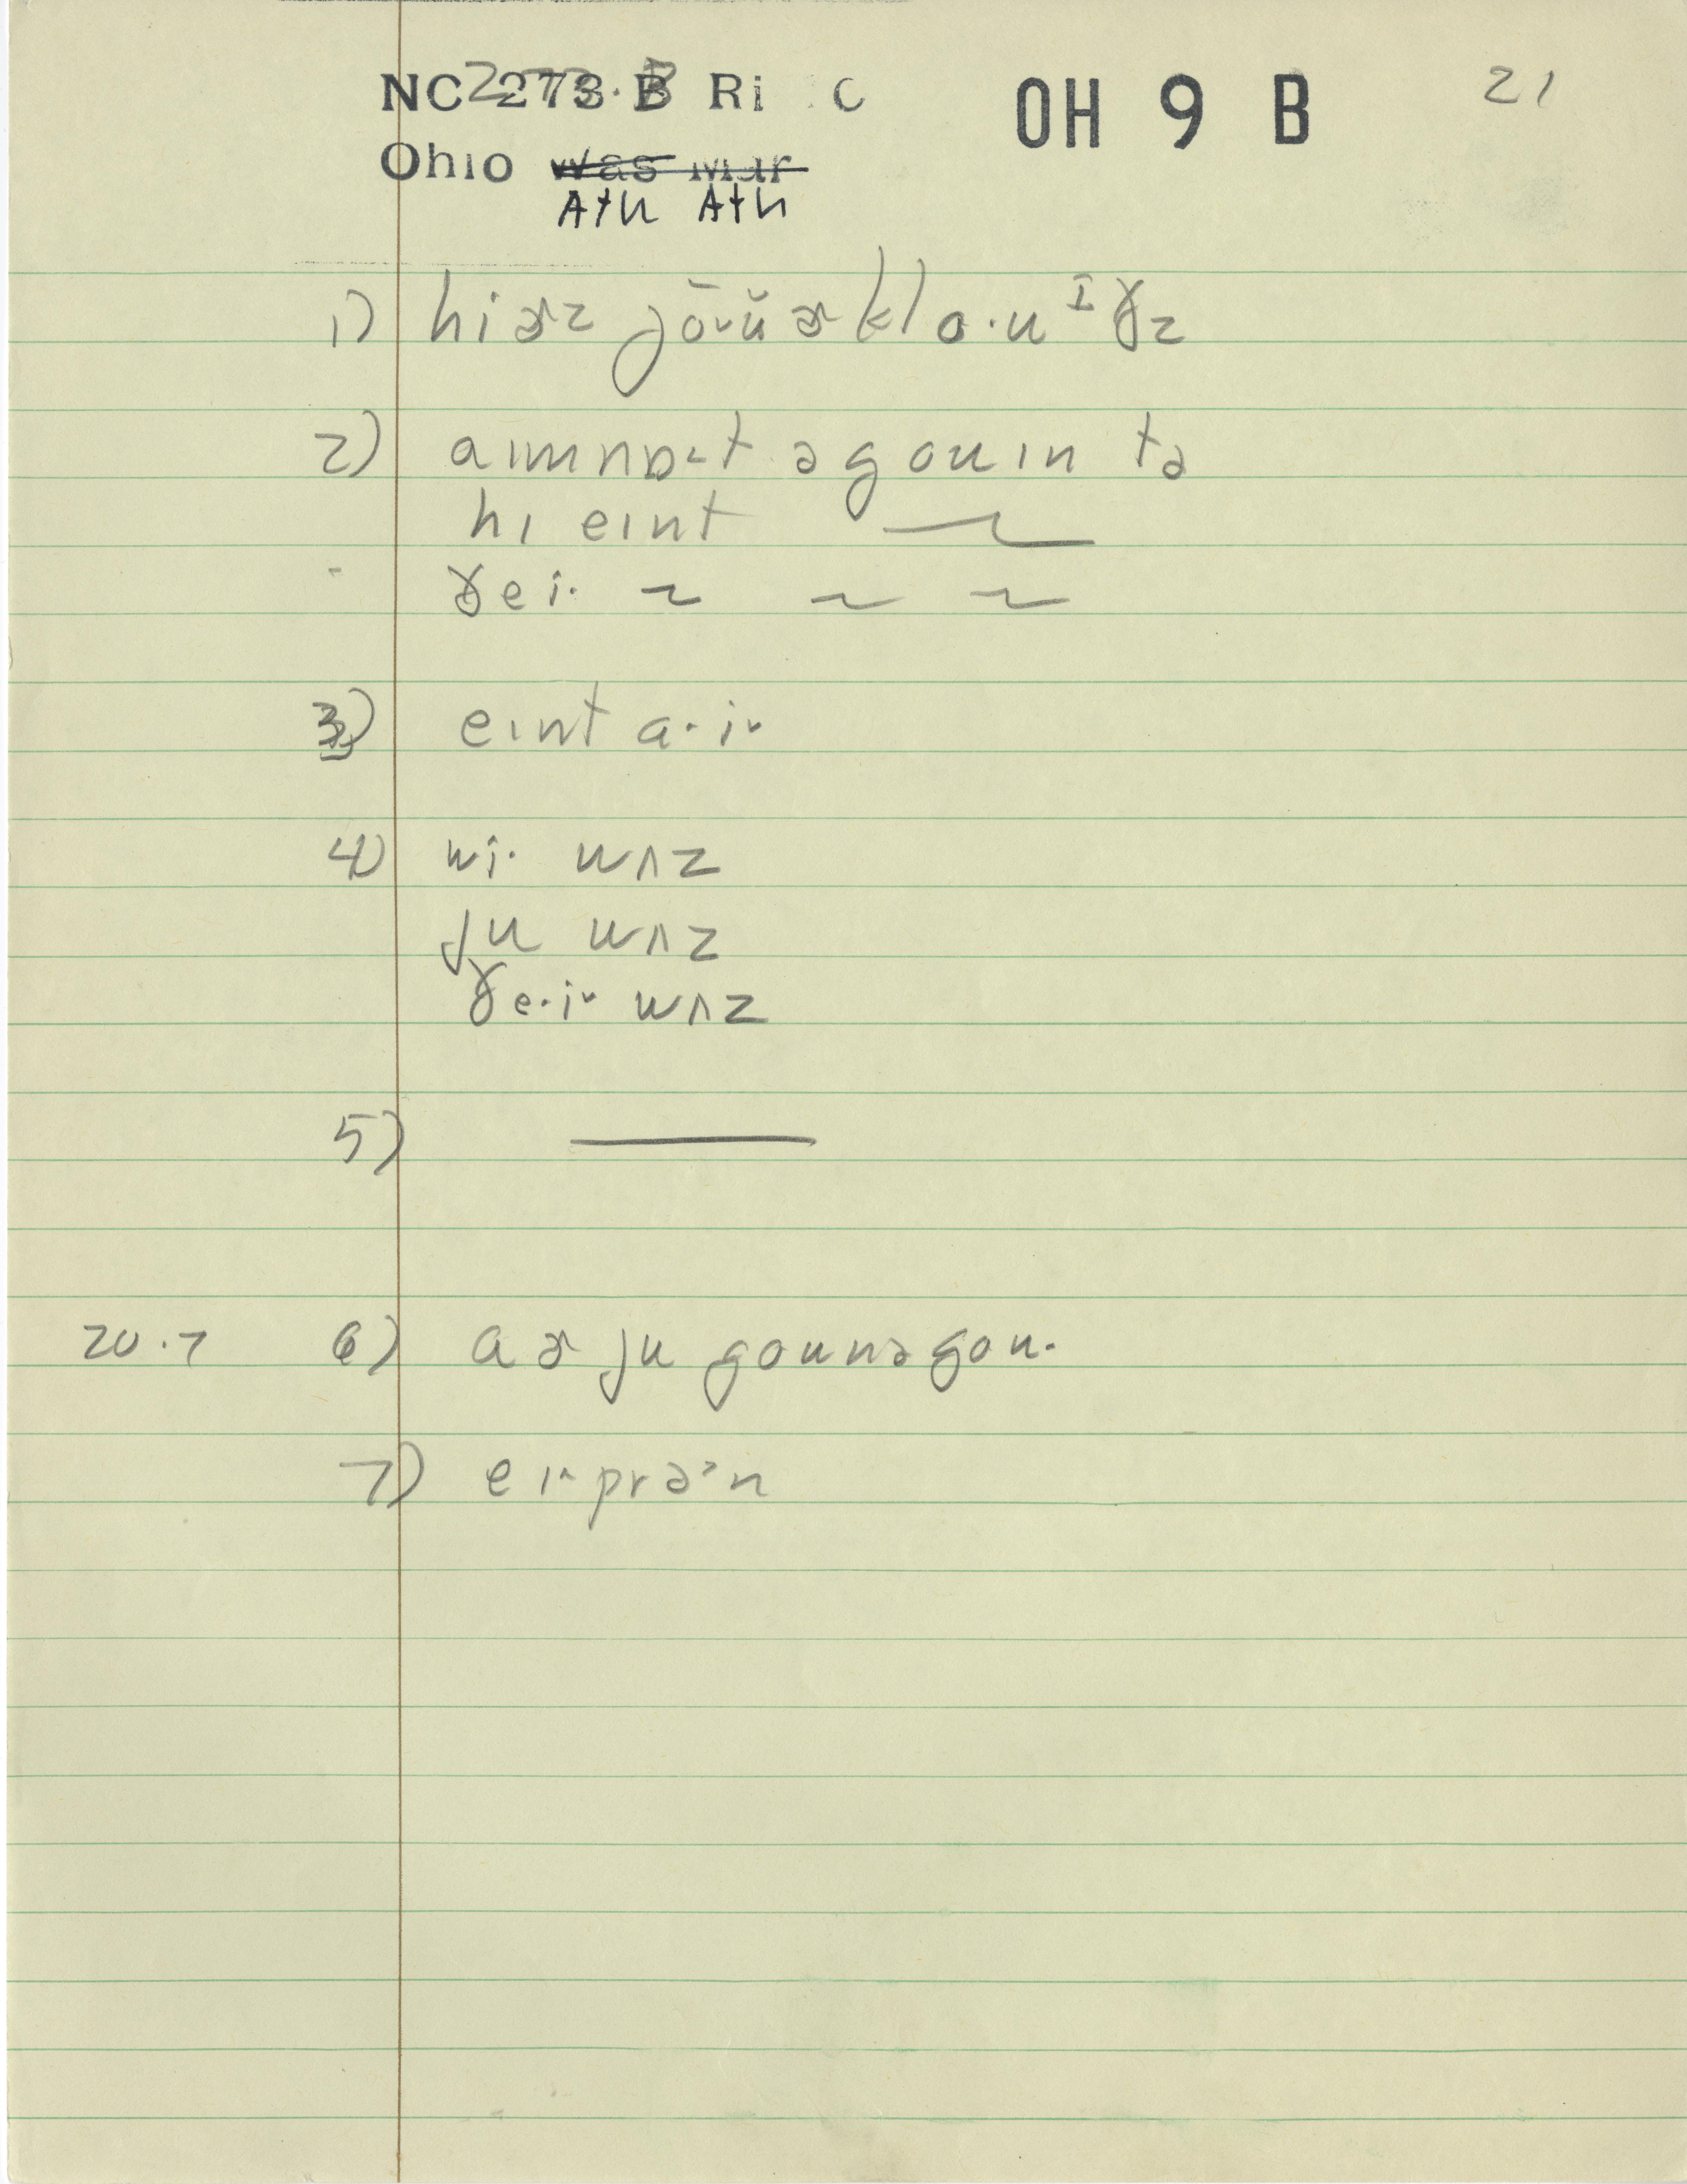 NC 273.B Ri C OH 9 B 21
Ohio Was Mar
Ath Ath
1) hiɚz jo̅ᵕŭɚ klo·uᶦðz
2) aɪmnɒ˔t əgouɪn tə
hɪ eɪnt ~
ðei· ~ ~ ~
3) eɪnt a·i˕
4) wi· wʌz
ju wʌz
ðe·i˕ wʌz
5) —
20.7 6) aɚ ju gounəgou·
7) eɪ˄prə˃n